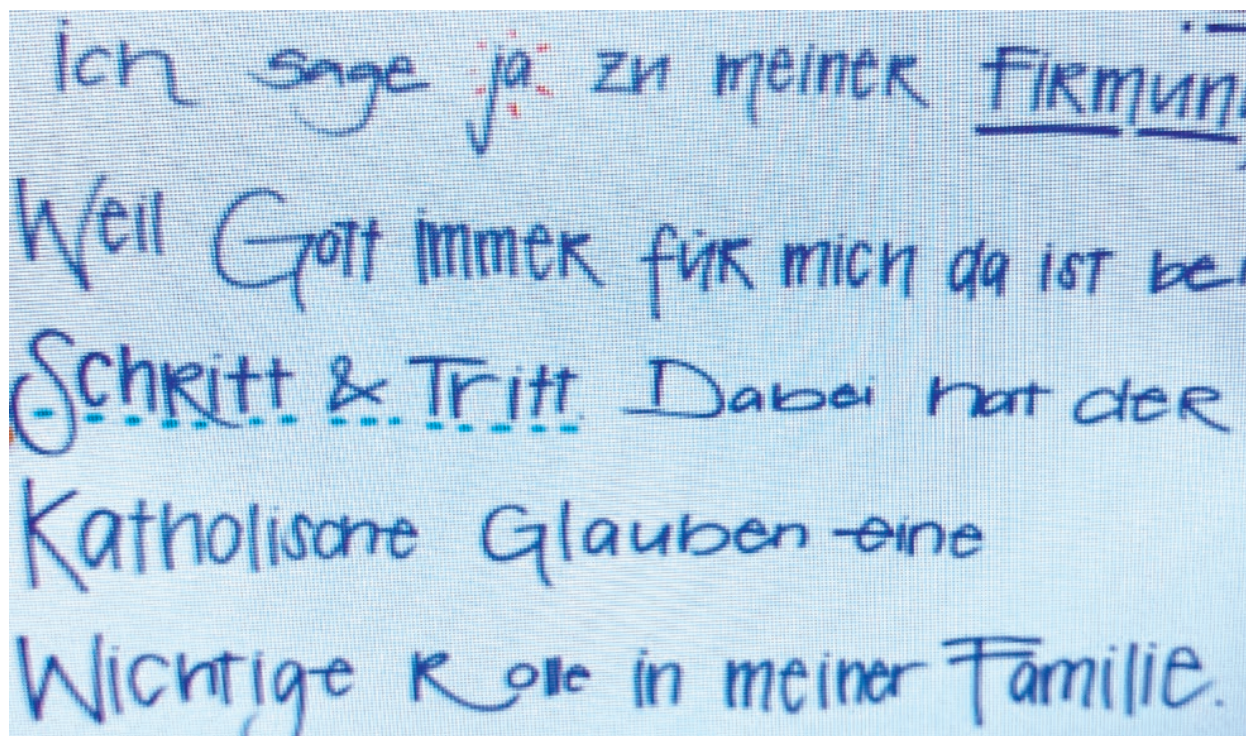 Ich sage ja zu meiner Firmun
Weil Gott immer für mich da ist bei
Schritt & Tritt. Dabei hat der
Katholische Glauben eine
Wichtige Rolle in meiner Familie.